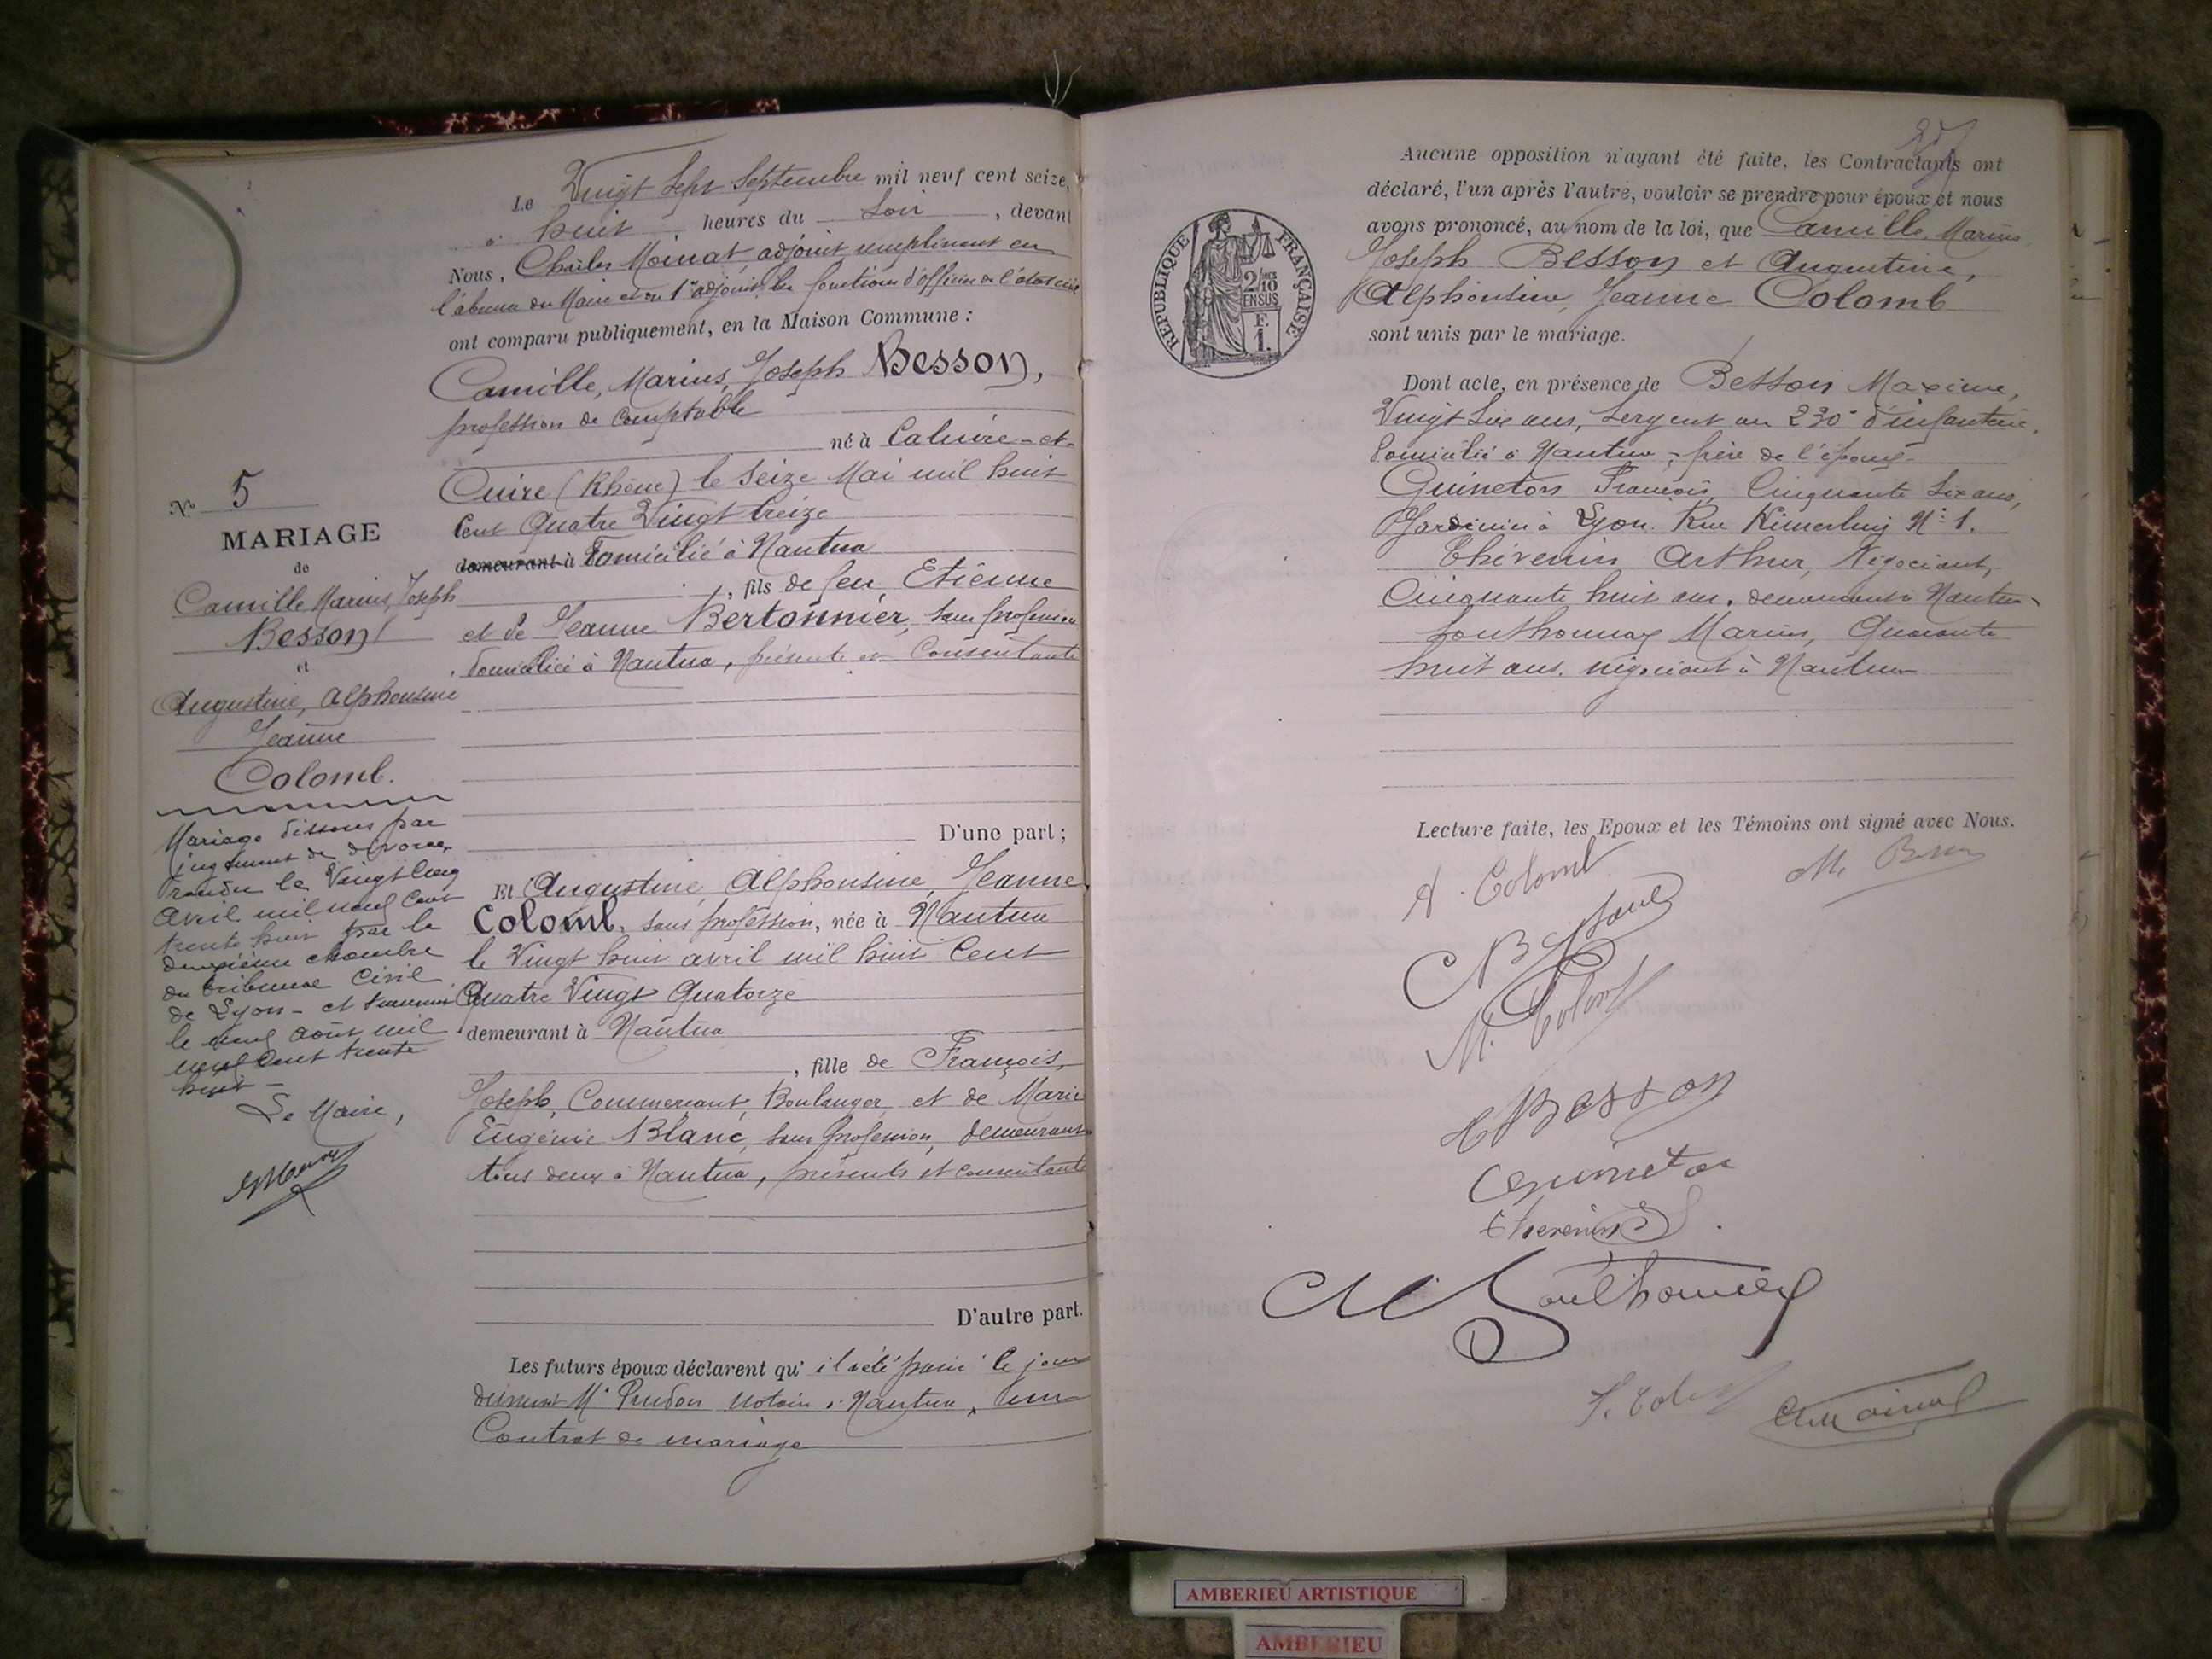 Le Vingt Sept Septembre mil neuf cent seize,
à huit heures du Soir, devant
Nous, Charles Moinat adjoint remplissant en
l'absence du Maire et du 1er adjoint les fonctions d'officier de l'état civil
ont comparu publiquement, en la Maison Commune :
Camille, Marius, Joseph Besson,
profession de Comptable
né à Caluire-et-
Cuire (Rhône) le Seize Mai mil huit
Cent Quatre Vingt treize
demeurant à Domicilié à Nantua
, fils de feu Etienne
et de Jeanne Bertonnier, sans profession
domiciliée à Nantua, présente et Consentante
D'une part;
Et Augustine, Alphonsine, Jeanne
Colomb, sans profession, née à Nantua
le Vingt huit avril mil huit Cent
Quatre Vingt Quatorze
demeurant à Nantua
, fille de François,
Joseph, Commerçant, Boulanger et de Marie
Eugénie Blanc, sans profession, demeurant
tous deux à Nantua, présents et consentants
D'autre part.
Les futurs époux déclarent qu' il a été passé le jour
devant Me Prudon notaire à Nantua, un
Contrat de mariage
No 5
MARIAGE
de
Camille Marius, Joseph
Besson
et
Augustine, Alphonsine
Jeanne
Colomb.
Mariage dissous par
jugement de divorce
rendu le Vingt Cinq
Avril mil neuf Cent
trente huit par la
deuxième chambre
du tribunal Civil
de Lyon - et transcrit
le neuf Août mil
neuf Cent trente
huit -
Le Maire,
Aucune opposition n'ayant été faite, les Contractants ont
déclaré, l'un après l'autre, vouloir se prendre pour époux et nous
avons prononcé, au nom de la loi, que Camille Marius
Joseph Besson et Augustine,
Alphonsine, Jeanne Colomb
sont unis par le mariage.
REPUBLIQUE FRANÇAISE
2/10
EN SUS
F.
1.
Dont acte, en présence de Besson Maxime,
Vingt Six ans, Sergent au 230e d'infanterie,
Domicilié à Nantua, frère de l'époux
Guineton François, Cinquante Six ans,
Jardinier à Lyon Rue Kimerling No 1.
Thévenin Arthur, Négociant,
Cinquante huit ans, demeurant à Nantua
Southonnax Marius, Quarante
huit ans, négociant à Nantua
Lecture faite, les Epoux et les Témoins ont signé avec Nous.
A. Colomb
M. Besson
M. Colomb
Besson
Guineton
Thevenin
M. Southonnax
Ch Moinat
AMBERIEU ARTISTIQUE
AMBERIEU